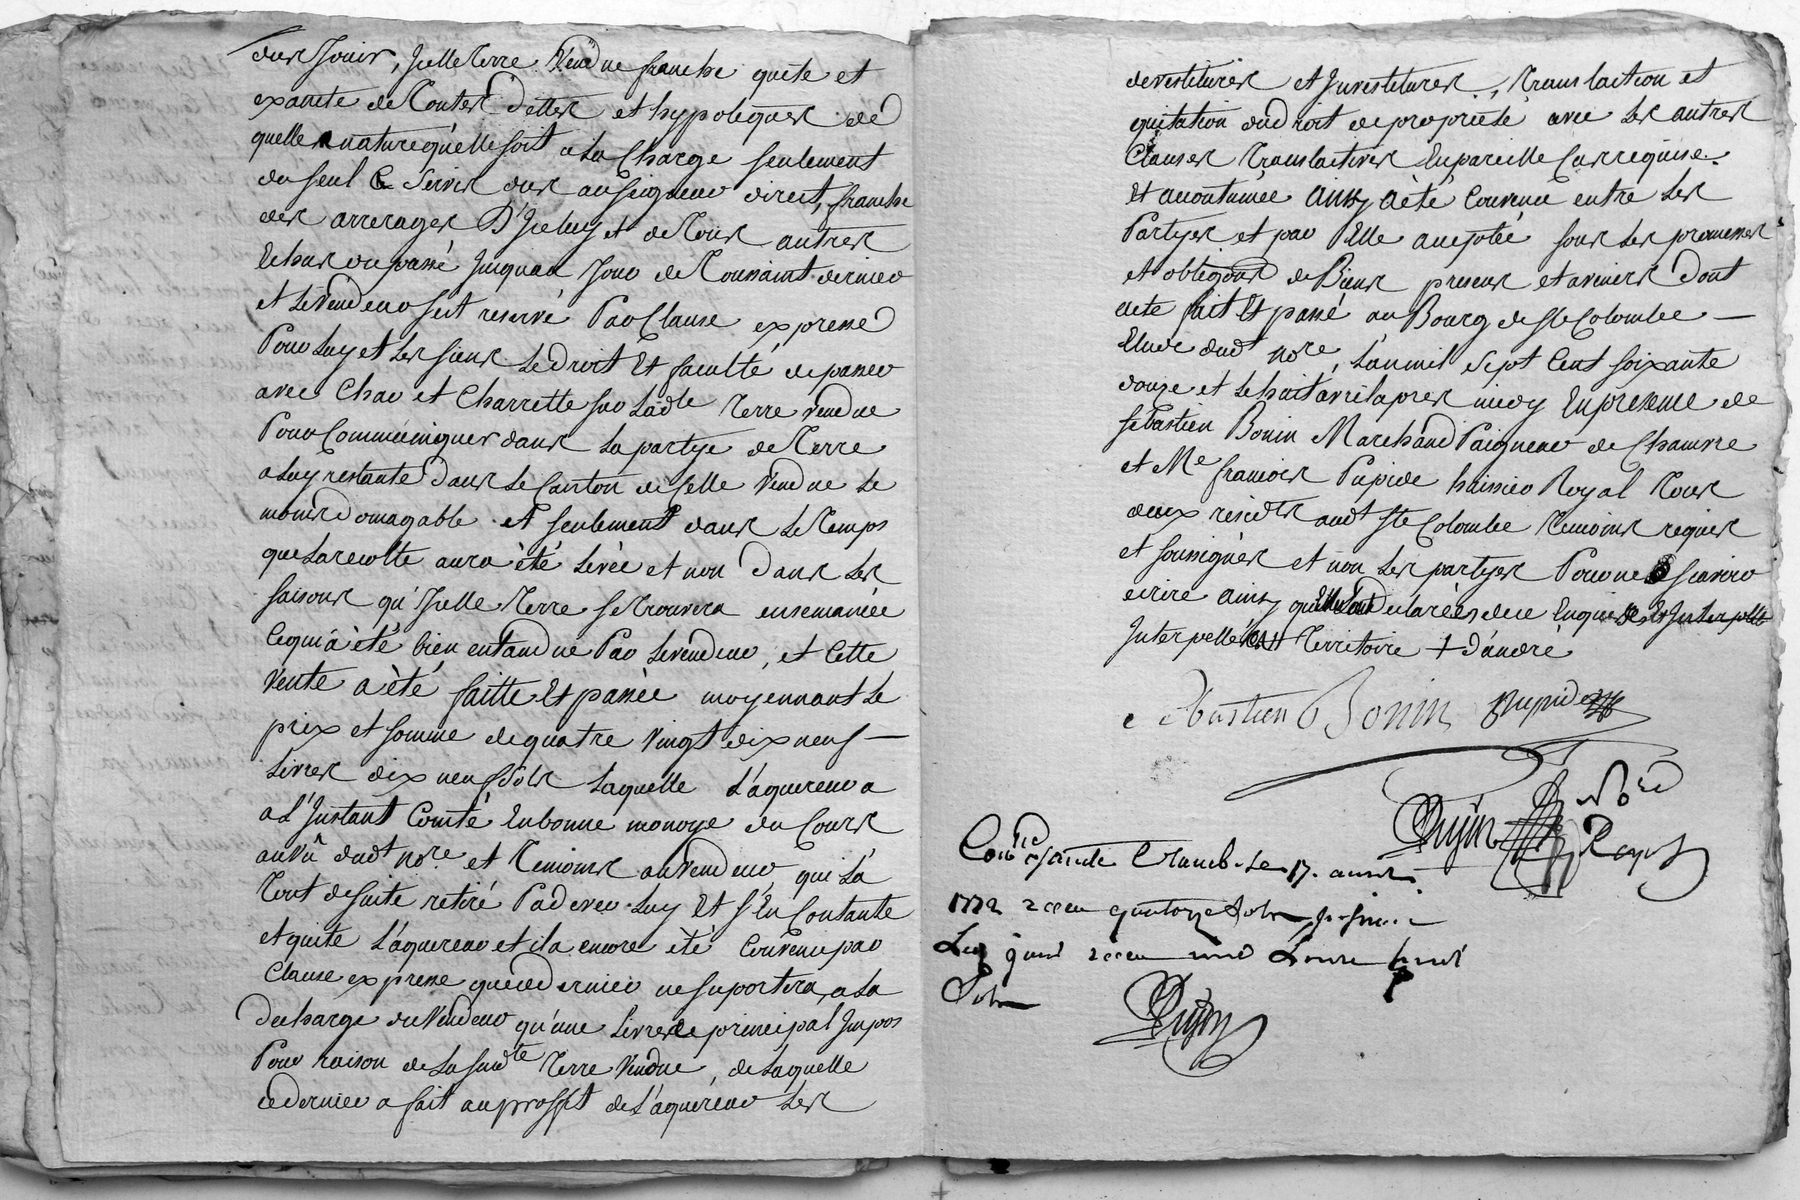 d'en Jouir, Jcelle Terre Vendue franche quite et
examte de Toutes dettes et hypoteques de
quelle nature qu'elle soit a La Charge seulement
du seul Servis dus au seigneur direct, franche
des arrerages D'Jceluy et de Tous autres
Echus du passé Jusqu'au Jour de Toussaint dernier
et Le Vendeur s'est reservé Par Clause expresse
Pour Luy et Les siens Le droit Et faculté de passer
avec Char et Charrette sur Ladte Terre vendue
Pour Communiquer dans La partye de Terre
a Luy restante dans Le Canton de Celle Vendue Le
moins domagable et seulement dans Le Temps
que La recolte aura été Levée et non dans Les
saisons qu'Jcelle Terre se Trouvera ensemancée
Ce qui a été bien entandue Par Le vendeur, et Cette
Vente a été faitte Et passée moyennant Le
prix et somme de quatre Vingt dix neuf —
Livres dix neuf sols Laquelle L'aquereur a
a L'Jnstant Comté En bonne monoye du Cours
au Vû dudt nore et Temoins au Vendeur, qui L'a
Tout de suite retiré Par devers Luy Et s'En Contante
et quite L'aquereur et il a encore été Convenu par
Clause expresse que ce dernier ne suportera, a La
decharge du Vendeur qu'une Livre de principal Jmpos
Pour raison de La susdte Terre Vendue, de Laquelle
ce dernier a fait au proffit de L'aquereur Les
devestitures et Jnvestitures, Translaction et
quitation du droit de proprieté avec Les autres
Clauses Translactives En pareille Cas requise
Et acoutumée ainsy a été Convenu entre Les
Partyes et par Elle acceptée sous Les promesses
et obligaons de Biens presens et avenirs dont
acte fait Et passé au Bourg de Ste Colombe —
Etude dudt nore, L'an mil sept Cent soixante
douze et Le huit avril apres midy En presence de
sebastien Bonin Marchand Paigneur de Chanvre
et Me francois Pupide huissier Royal Tous
deux residts audt Ste Colombe Temoins requis
et soussignés et non Les partyes Pour ne scavoir
ecrire ainsy qu'Elles ont declarées de ce Enquises Et Jnterpellé
Jnterpellées Territoire + d'andré
Sebastien Bonin Pupide
Nore
Dujin Royal
Conlé
17. avril
1772 receu quatorze sols
receu une Livre huit
Sols
Dujin